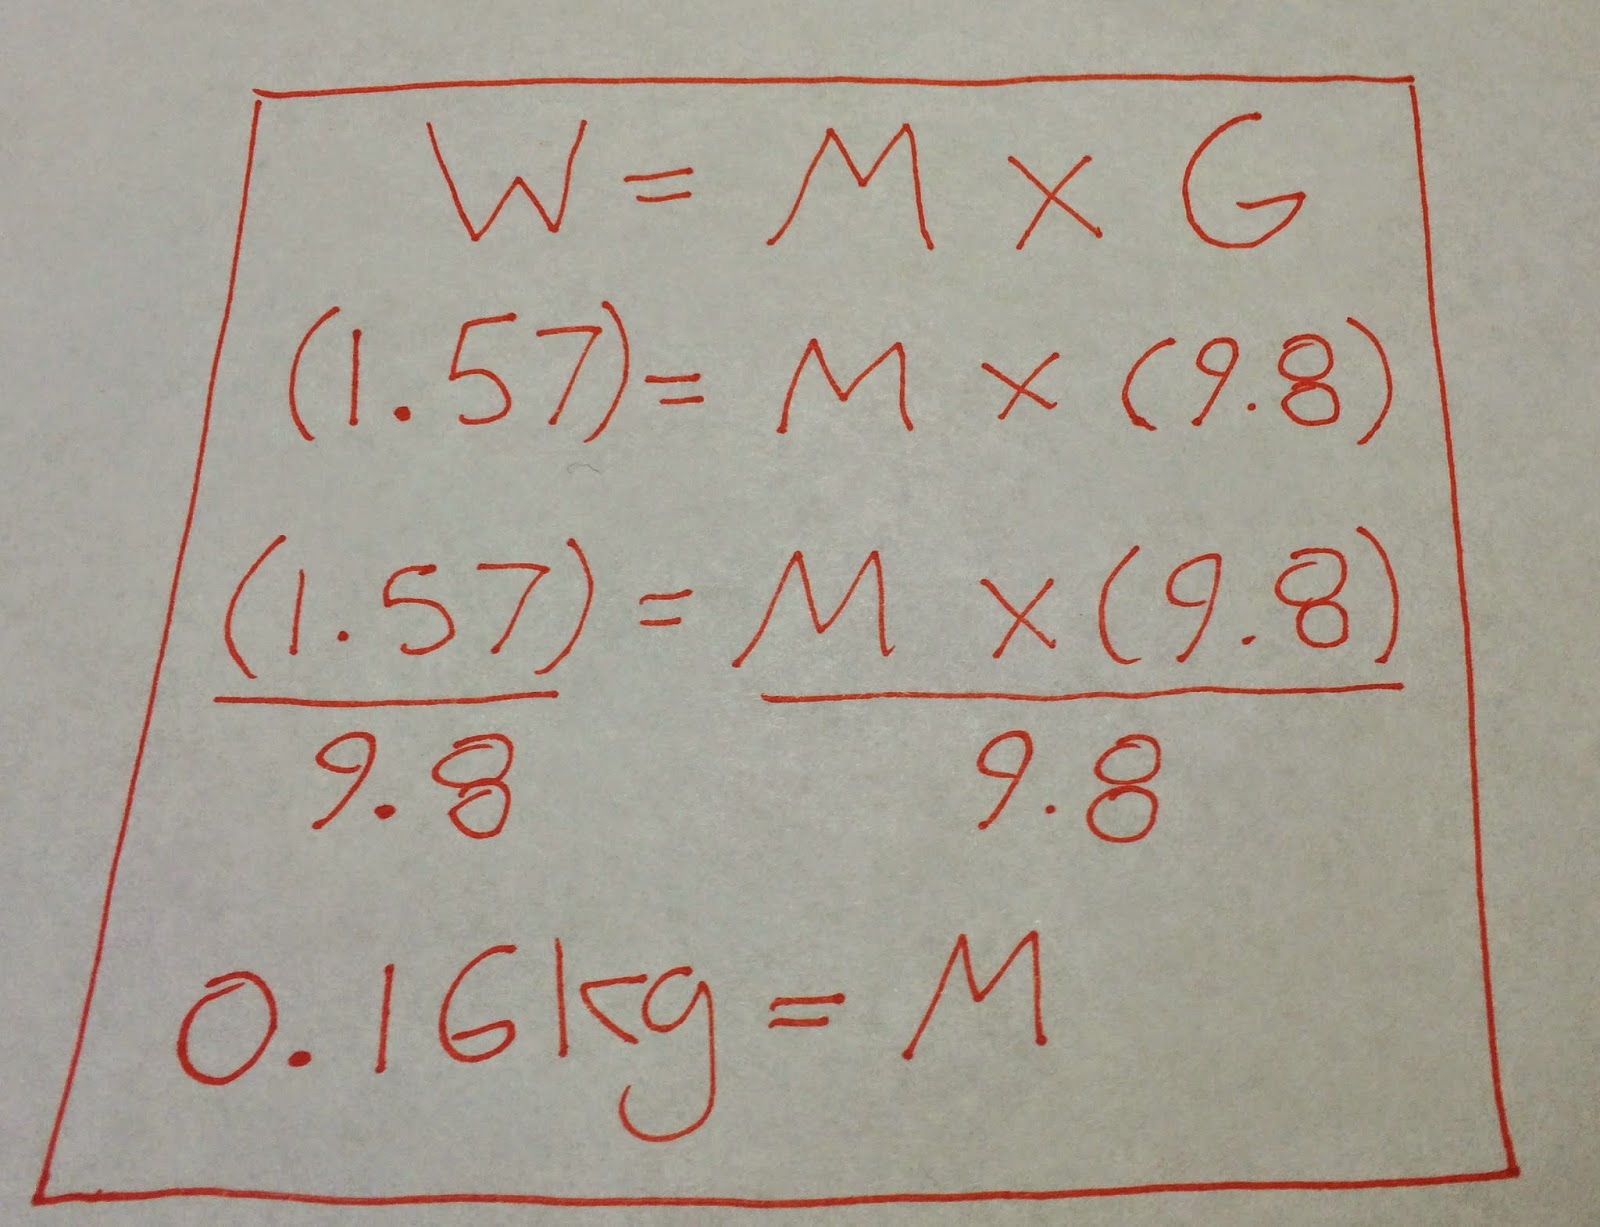 W = M x G
(1.57) = M x (9.8)
(1.57) = M x (9.8)
9.8 9.8
0.16kg = M